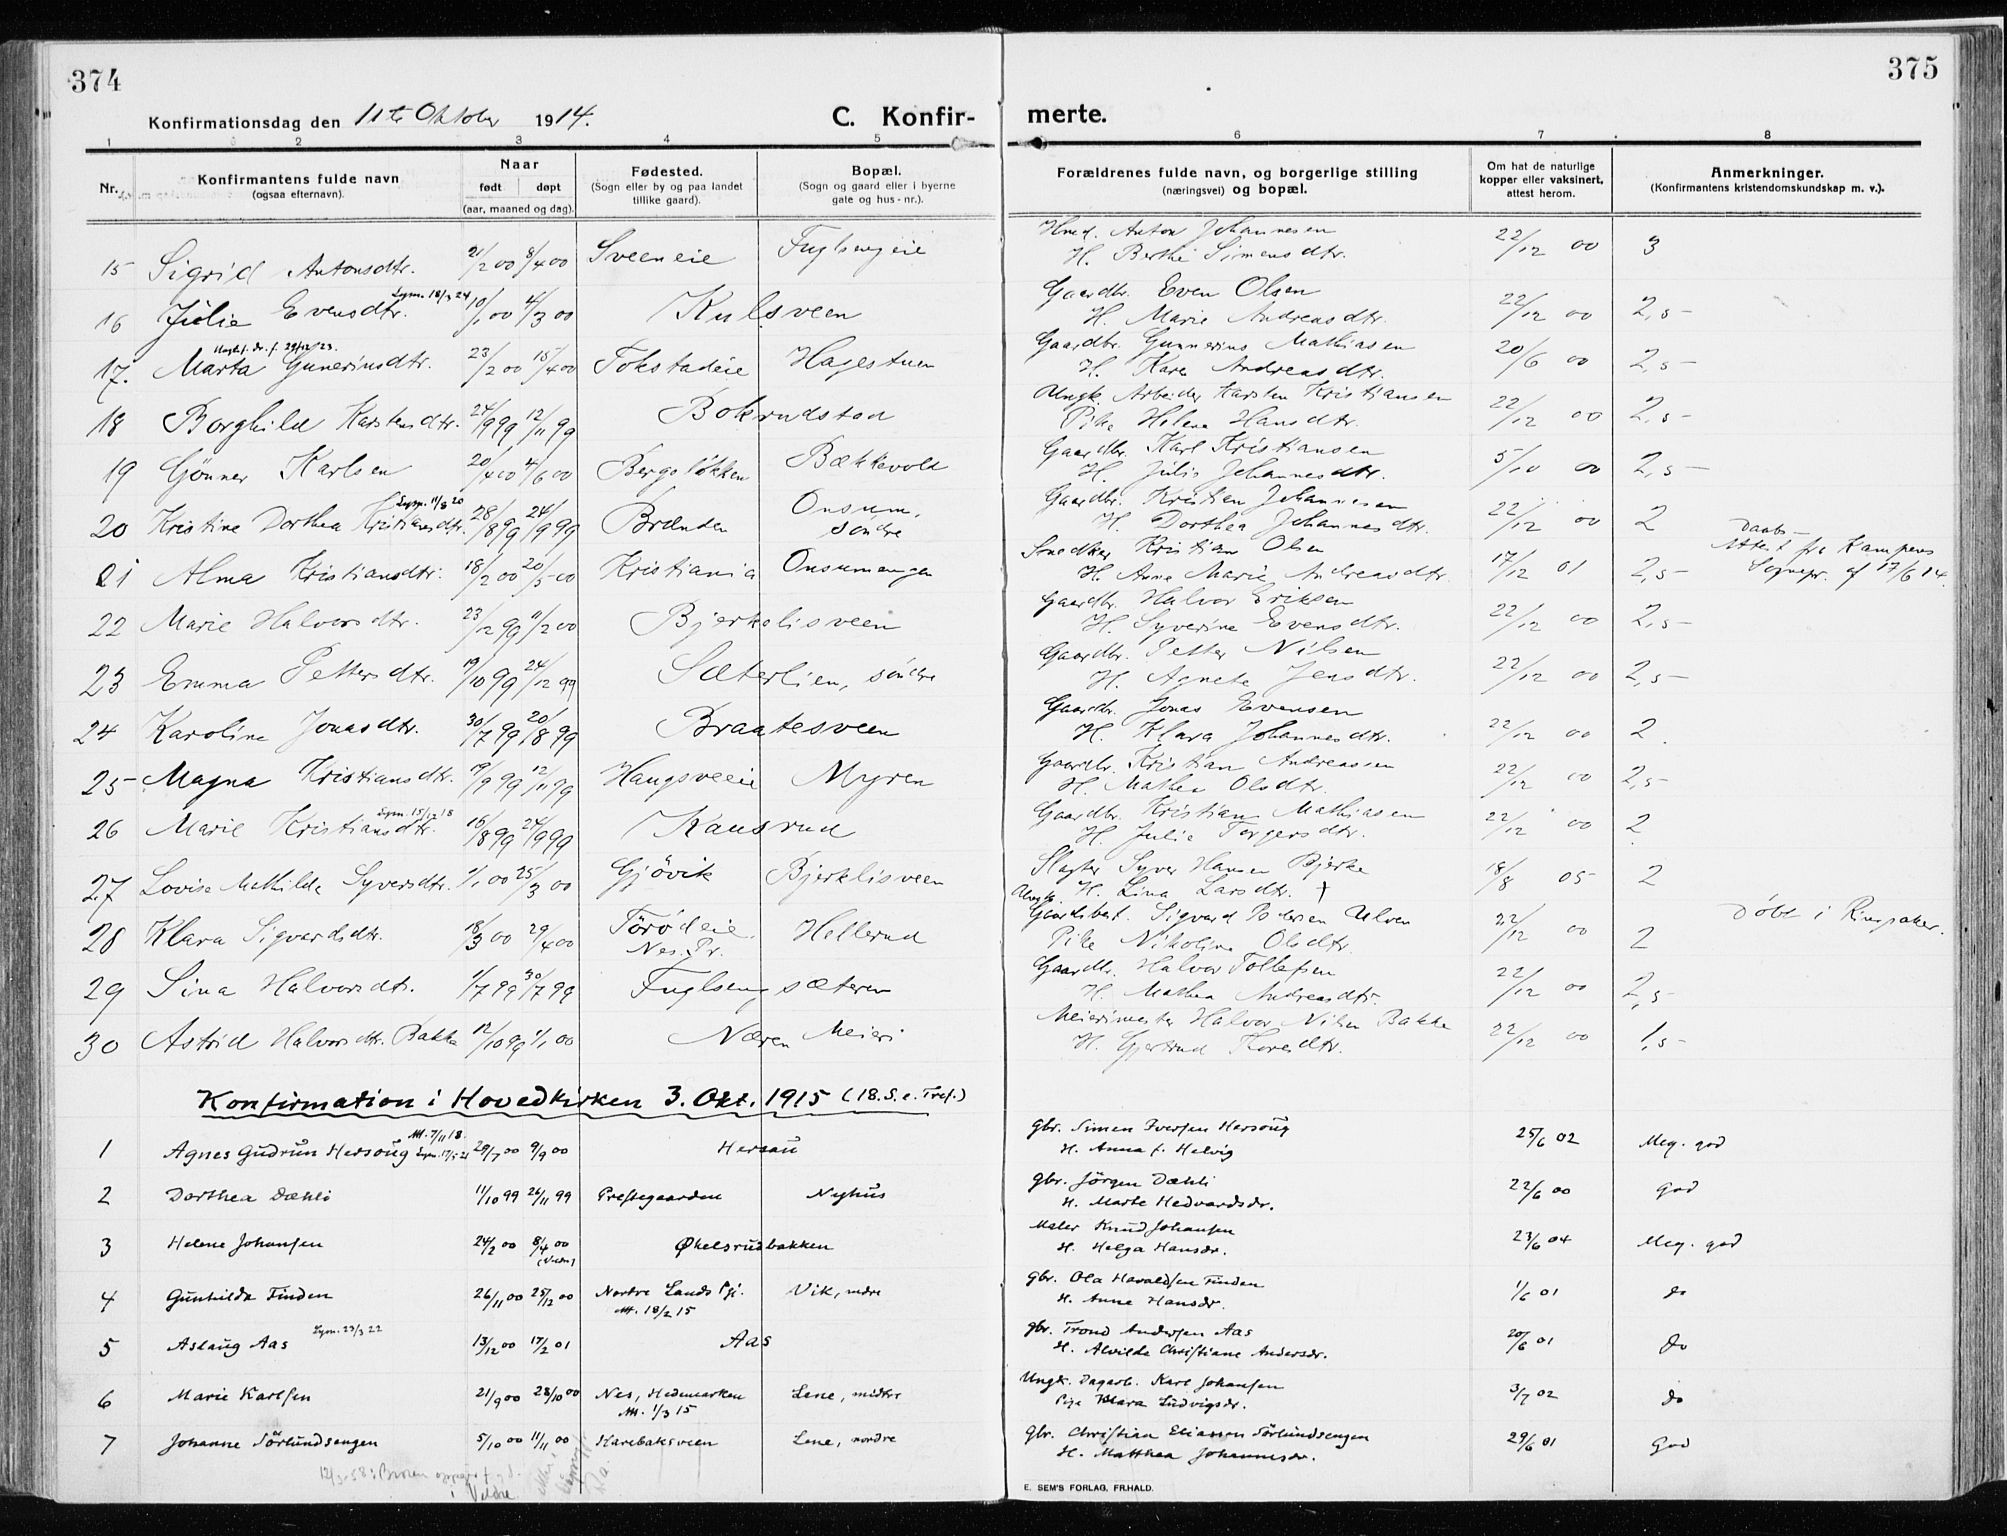 374
375
Konfirmationsdag den 11te Oktober 1914.
C. Konfirmerte.
1 2 3 4 5 6 7 8
Nr.
Konfirmantens fulde navn
(ogsaa efternavn).
Naar
født døpt
(aar, maaned og dag).
Fødested.
(Sogn eller by og paa landet
tillike gaard).
Bopæl.
(Sogn og gaard eller i byerne
gate og hus-nr.).
Forældrenes fulde navn, og borgerlige stilling
(næringsvei) og bopæl.
Om hat de naturlige
kopper eller vaksinert,
attest herom.
Anmerkninger.
(Konfirmantens kristendomskundskap m. v.).
15 Sigrid Antonsdtr. 21/2 00 8/4 00 Sveeneie Fuglsengeie Hmd. Anton Johannesen 22/12 00 3
H. Berthe Simensdtr.
16 Julie Evensdtr. Lysn. 18/3 24 10/1 00 4/3 00 Kulsveen Gaardbr. Even Olsen 22/12 00 2,5
H. Marie Andreasdtr.
17. Marta Gunerinsdtr. 23/2 00 15/4 00 Tokstadeie Hagestuen Gaardbr. Gunnerius Mathiasen 20/6 00 2,5
H. Karen Andreasdtr.
18 Borghild Karstensdtr. 24/9 99 12/11 99 Bokrudstad Ungk. Arbeider Karsten Kristiansen 22/12 00 2,5
Pike Helene Hansdtr.
19 Gönner Karlsen 20/4 00 4/6 00 Bergsløkken Bækkevold Gaardbr. Karl Kristiansen 5/10 00 2,5
H. Julie Johannesdtr.
20 Kristine Dorthea Kristiansdtr. Lysn. 11/8 20 28/8 99 24/9 99 Brænden Onsum, søndre Gaardbr. Kristian Johannesen 22/12 00 2
H. Dorthea Johannesdtr.
21 Alma Kristiansdtr. 18/2 00 20/5 00 Kristiania Onsumengen Snedker Kristian Olsen 17/12 01 2,5
H. Anne Marie Andreasdtr.
Daabs-
Attest fra Kampens
Sognepr. af 17/6 14.
22 Marie Halvorsdtr. 23/12 99 11/2 00 Bjerkelisveen Gaardbr. Halvor Eriksen 22/12 00 2,5
H. Syverine Evensdtr.
23 Emma Pettersdtr. 19/10 99 24/12 99 Sæterlien, søndre Gaardbr. Petter Nilsen 22/12 00 2,5
H. Agnete Jensdtr.
24 Karoline Jonasdtr. 30/7 99 20/8 99 Braatesveen Gaardbr. Jonas Evensen 22/12 00 2
H. Klara Johannesdtr.
25 Magna Kristiansdtr. 19/9 99 12/11 99 Haugsveeie Myren Gaardbr. Kristian Andreassen 22/12 00 2,5
H. Mathea Olsdtr.
26 Marie Kristiansdtr. Lysn. 15/12 18 16/8 99 24/9 99 Kausrud Gaardbr. Kristian Mathiasen 22/12 00 2
H. Julie Torgersdtr.
27 Lovise Mathilde Syversdtr. 1/1 00 25/3 00 Gjøvik Bjerklisveen Slagter Syver Hansen Bjerke 18/8 05 2
H. Lina Larsdtr. †
28 Klara Sigvardsdtr. 18/3 00 29/4 00 Törödeie Nes. Pr. Hellerud Ungk. Gaardsbest. Sigvard Pedersen Ulven 22/12 00 2
Pike Nikoline Olsdtr.
Døbt i Ringsaker.
29 Sina Halvorsdtr. 1/7 99 30/7 99 Fuglsengsæteren Gaardbr. Halvor Tollefsen 22/12 00 2,5
H. Mathea Andreasdtr.
30 Astrid Halvorsdtr. Bakke 12/10 99 1/1 00 Næren Meieri Meierimester Halvor Nilsen Bakke 22/12 00 1,5
H. Gjertrud Thoresdtr.
Konfirmation i Hovedkirken 3. Okt. 1915 (18. S. e. Tref.)
1 Agnes Gudrun Hersoug Att. 7/11 18. Lysn. 17/5 21 29/7 00 9/9 00 Hersau gbr. Simen Iversen Hersoug 25/6 02 Meg. god
H. Anna f. Helvig
2 Dorthea Dæhli 11/10 99 26/11 99 Prestegaarden Nyhus gbr. Jörgen Dæhli 22/6 00 God
H. Marte Hedvardsdr.
3 Helene Johansen 24/2 00 8/4 00 Økelsrudbakken Maler Knud Johansen 23/6 04 Meg. god
H. Helga Hansdr.
4 Gunhilda Finden 26/11 00 25/12 00 Nortre Lands Pgj. Vik, nedre gbr. Ola Haraldsen Finden 1/6 01 do
Att. 18/2 15 H. Anne Hansdr.
5 Aslaug Aas Lysn. 23/3 22 13/12 00 17/2 01 Aas gbr. Trond Andersen Aas 20/6 01 do
H. Alvilde Christiane Andersdr.
6 Marie Karlsen 21/9 00 28/10 00 Nes, Hedemarken Lene, midtre Ungk. Dagarb. Karl Johansen 3/7 02 do
Att. 1/3 15 Pige Klara Ludvigsdr.
7 Johanne Sörlundsengen 5/10 00 11/11 00 Harebaksveen Lene, nordre gbr. Christian Eliassen Sörlundsengen 29/6 01 God
H. Matthea Johannesdr.
i Veldre
E. SEM'S FORLAG, FR.HALD.